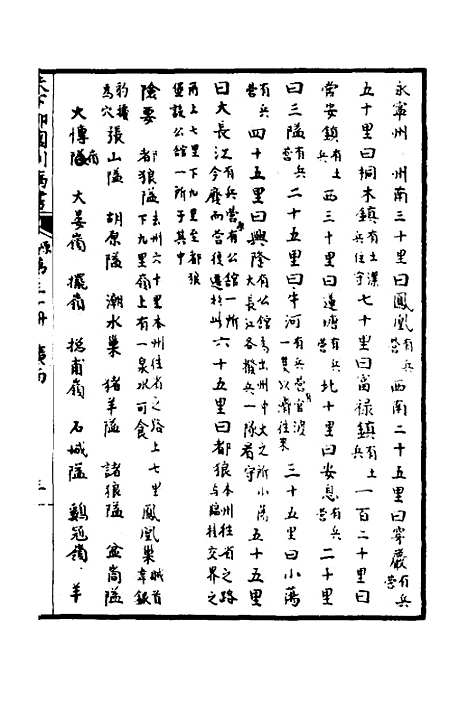 永寧州 州南三十里曰鳳凰有兵營 西南二十五里曰穿巖有兵營
五十里曰桐木鎮有土漢兵住守 七十里曰富祿鎮有土兵 一百二十里曰
常安鎮有土兵 西三十里曰蓮塘有兵營 北十里曰安息有兵營 二十里
曰三隘有兵營 二十五里曰牛河有兵營官渡一隻以濟往來 三十五里曰小蕩
有兵營 四十五里曰興隆有公館為出州中火之所小蕩大長江各撥兵一隊者守 五十五里
曰大長江有兵營有公館一所今廢而營後遷於此 六十五里曰都狼本州往省之路與臨桂交界之
所上七里下九里至都狼堡設公館一所于其中
險要 都狼隘去州六十里本州往省之路上七里下九里嶺上有一泉水可食 鳳凰巢賊首韋銀
豹據為穴 張山隘 胡原隘 潮水巢 猪羊隘 諸狼隘 盆崗隘
大傅隘 大晏嶺 擺嶺 挖甫嶺 石城隘 鷄冠嶺 羊
天下郡國利病書 原第三十冊 廣西